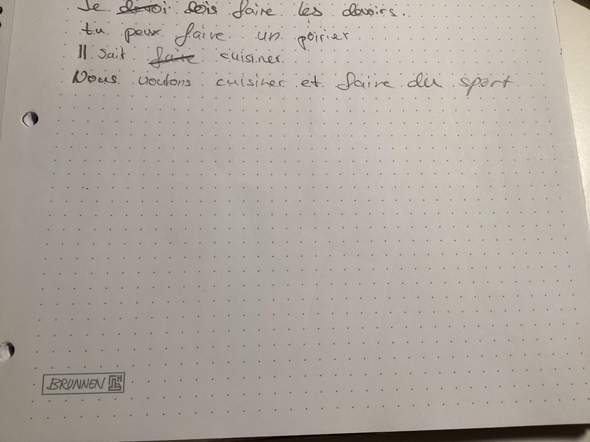 Je devoi dois faire les devoirs.
tu peux faire un poirier
Il sait faire cuisiner
Nous voulons cuisiner et faire du sport
BRUNNEN